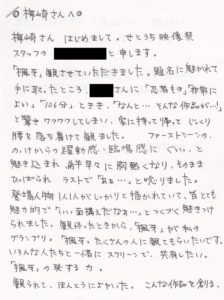 ◎ 梅崎さんへ◎
梅崎さん はじめまして。せとうち映像祭
スタッフの と申します。
観させていただきました。題名に魅かれて
手に取ったところ、 さんに
よいよ。「106分」ときき、「なんと… そんな作品が…!」
と驚き ワクワクしてしまい、家に持って帰って じっくり
腰を落ち着けて観ました。 ファーストシーンの、
のっけからの躍動感・臨場感に ぐい、と
魅き込まれ、 そのまま
ひっぱられ ラストで「あぁ…」と唸りました。
登場人物1人1人がしっかりと描かれていて、皆とても
魅力的で「いい面構えだなぁ…」とつくづく魅きつけ
られました。観終ったときから、 が私の
グランプリ。 たくさんの人に観てもらいたいです。
いろんな人たちと一緒に スクリーンで、共有したい。
の発する力。
観られて、ほんとうによかった。 こんな作品を創る、